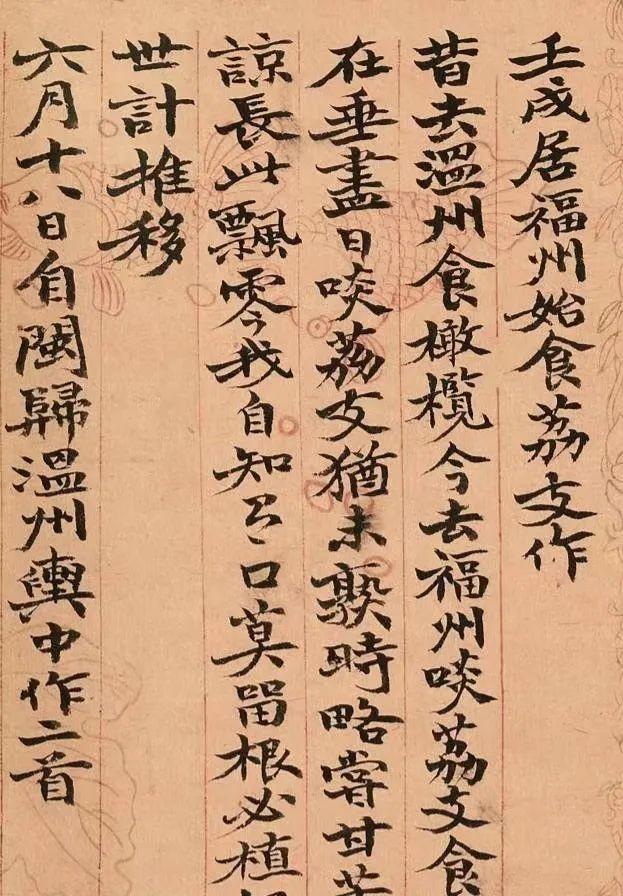 壬戌居福州始食荔支作
昔去溫州食橄欖今去福州啖荔支食
在垂盡日啖荔支猶未熟時略嘗甘苦
諒長此飄零我自知口莫留根必植
世計推移
六月十八日自閩歸溫州輿中作二首